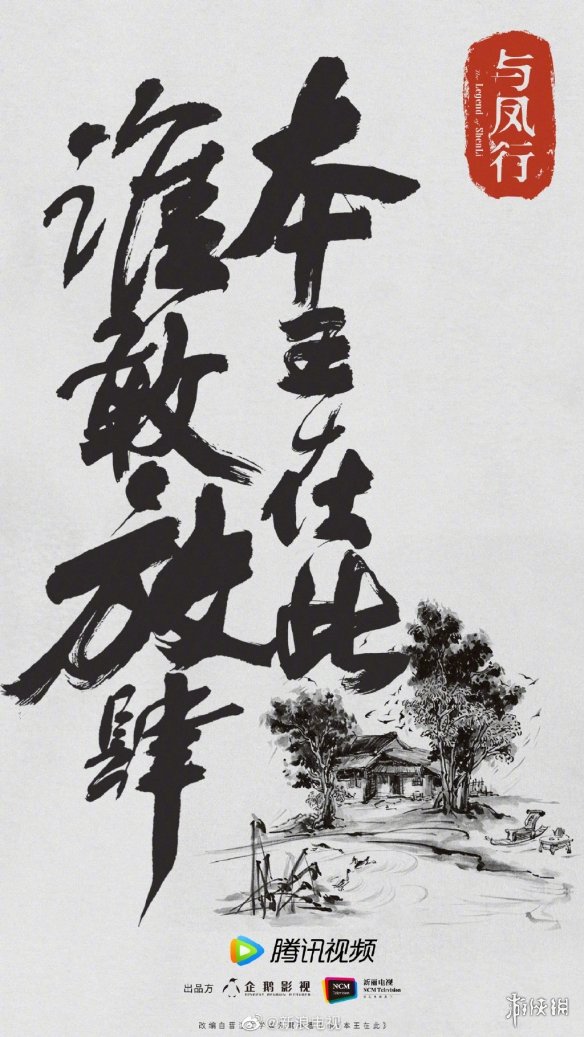 与凤行
The Legend of ShenLi
本王在此
谁敢放肆
腾讯视频
出品方 企鹅影视 NCM 新丽电视
NCM Television
@新浪电视
本王在此》
游侠网